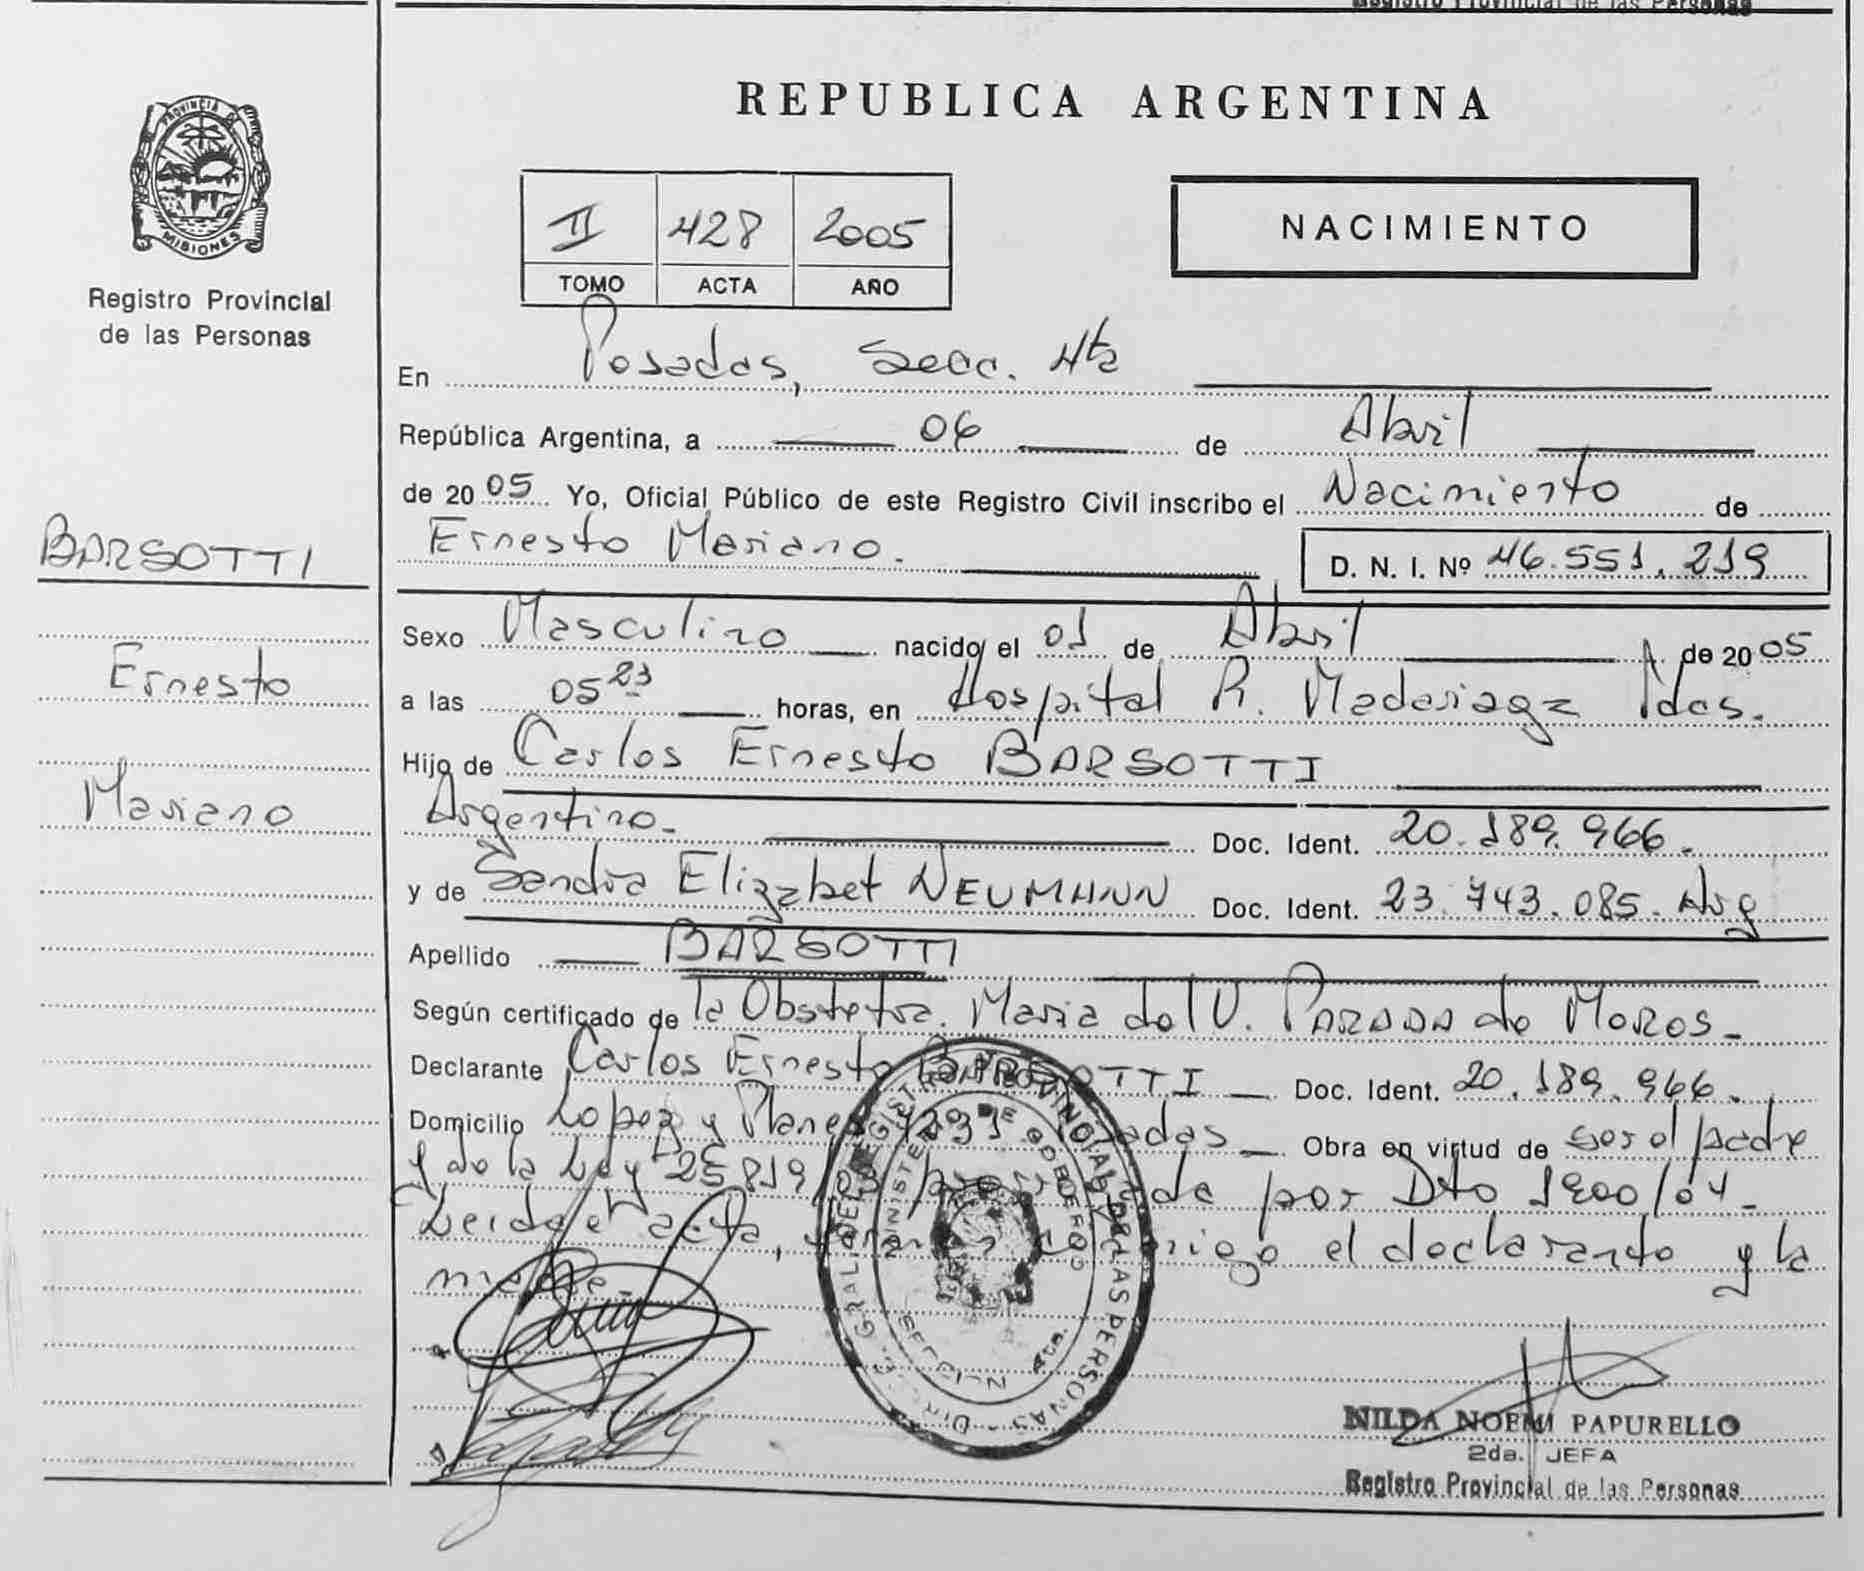 Registro Provincial de las Personas
PROVINCIA DE
MISIONES
Registro Provincial
de las Personas
BARSOTTI
Ernesto
Mariano
REPUBLICA ARGENTINA
II 428 2005
TOMO ACTA AÑO
NACIMIENTO
En Posadas, Secc. 4ta
República Argentina, a 06 de Abril
de 2005 Yo, Oficial Público de este Registro Civil inscribo el Nacimiento de
Ernesto Mariano. D. N. I. Nº 46.551.219
Sexo Masculino nacido el 01 de Abril de 2005
a las 05 23 horas, en Hospital R. Madariaga Pdas.
Hijo de Carlos Ernesto BARSOTTI
Argentino. Doc. Ident. 20.189.966.
y de Sandra Elizabet NEUMANN Doc. Ident. 23.743.085. Arg
Apellido BARSOTTI
Según certificado de la Obstetra. Maria del V. PARADA de MOROS.
Declarante Carlos Ernesto BARSOTTI Doc. Ident. 20.189.966.
Domicilio Lopez y Planes Posadas Obra en virtud de ser el padre
y de la Ley 25819/03 por Dto 1900/04.
Leida el acta, conmigo el declarante y la
madre
DEL REGISTRO PROVINCIAL DE LAS PERSONAS
MINISTERIO DE GOBIERNO
SECCION 4ta.
NILDA NOEMI PAPURELLO
2da. JEFA
Registro Provincial de las Personas